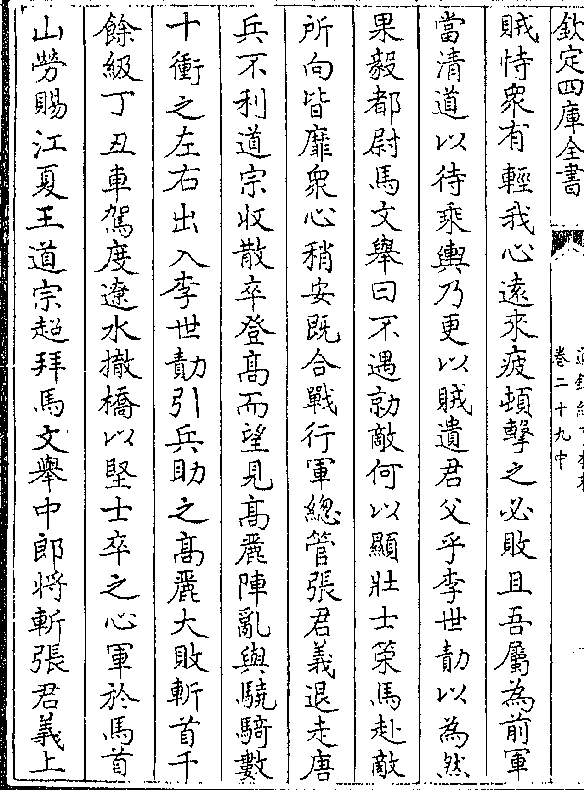 欽定四庫全書
卷二十九中
賊恃衆有輕我心遠來疲頓擊之必敗且吾屬為前軍
當清道以待乘輿乃更以賊遺君父乎李世勣以為然
果毅都尉馬文舉曰不遇勍敵何以顯壯士策馬赴敵
所向皆靡衆心稍安既合戰行軍總管張君義退走唐
兵不利道宗收散卒登髙而望見髙麗陣亂與驍騎數
十衝之左右出入李世勣引兵助之髙麗大敗斬首千
餘級丁丑車駕度遼水撤橋以堅士卒之心軍於馬首
山勞賜江夏王道宗超拜馬文舉中郎将斬張君義上